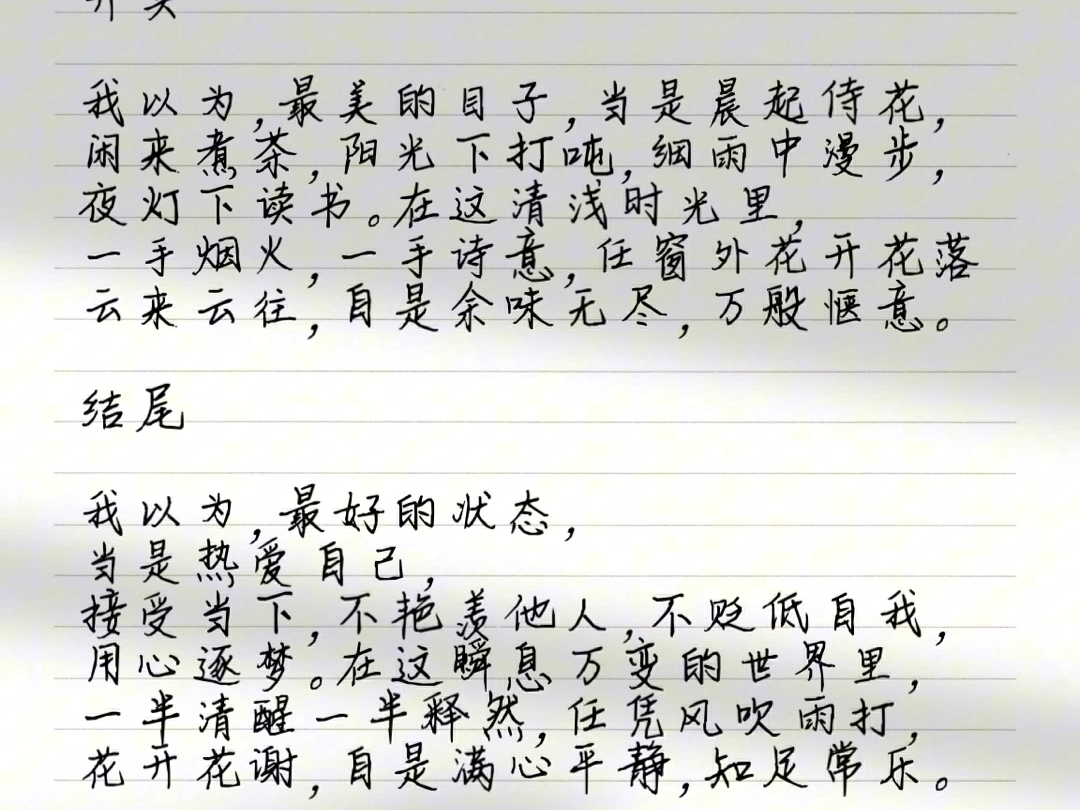 开头
我以为,最美的日子,当是晨起侍花,
闲来煮茶,阳光下打吨,细雨中漫步,
夜灯下读书。在这清浅时光里,
一手烟火,一手诗意,任窗外花开花落
云来云往,自是余味无尽,万般惬意。
结尾
我以为,最好的状态,
当是热爱自己,
接受当下,不艳羡他人,不贬低自我,
用心逐梦。在这瞬息万变的世界里,
一半清醒一半释然,任凭风吹雨打,
花开花谢,自是满心平静,知足常乐。